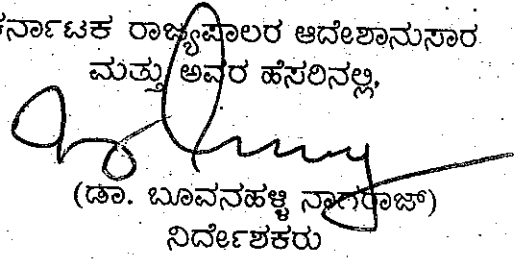 ಕರ್ನಾಟಕ ರಾಜ್ಯಪಾಲರ ಆದೇಶಾನುಸಾರ
ಮತ್ತು ಅವರ ಹೆಸರಿನಲ್ಲಿ,
(ಡಾ. ಬೂವನಹಳ್ಳಿ ನಾಗರಾಜ್)
ನಿರ್ದೇಶಕರು